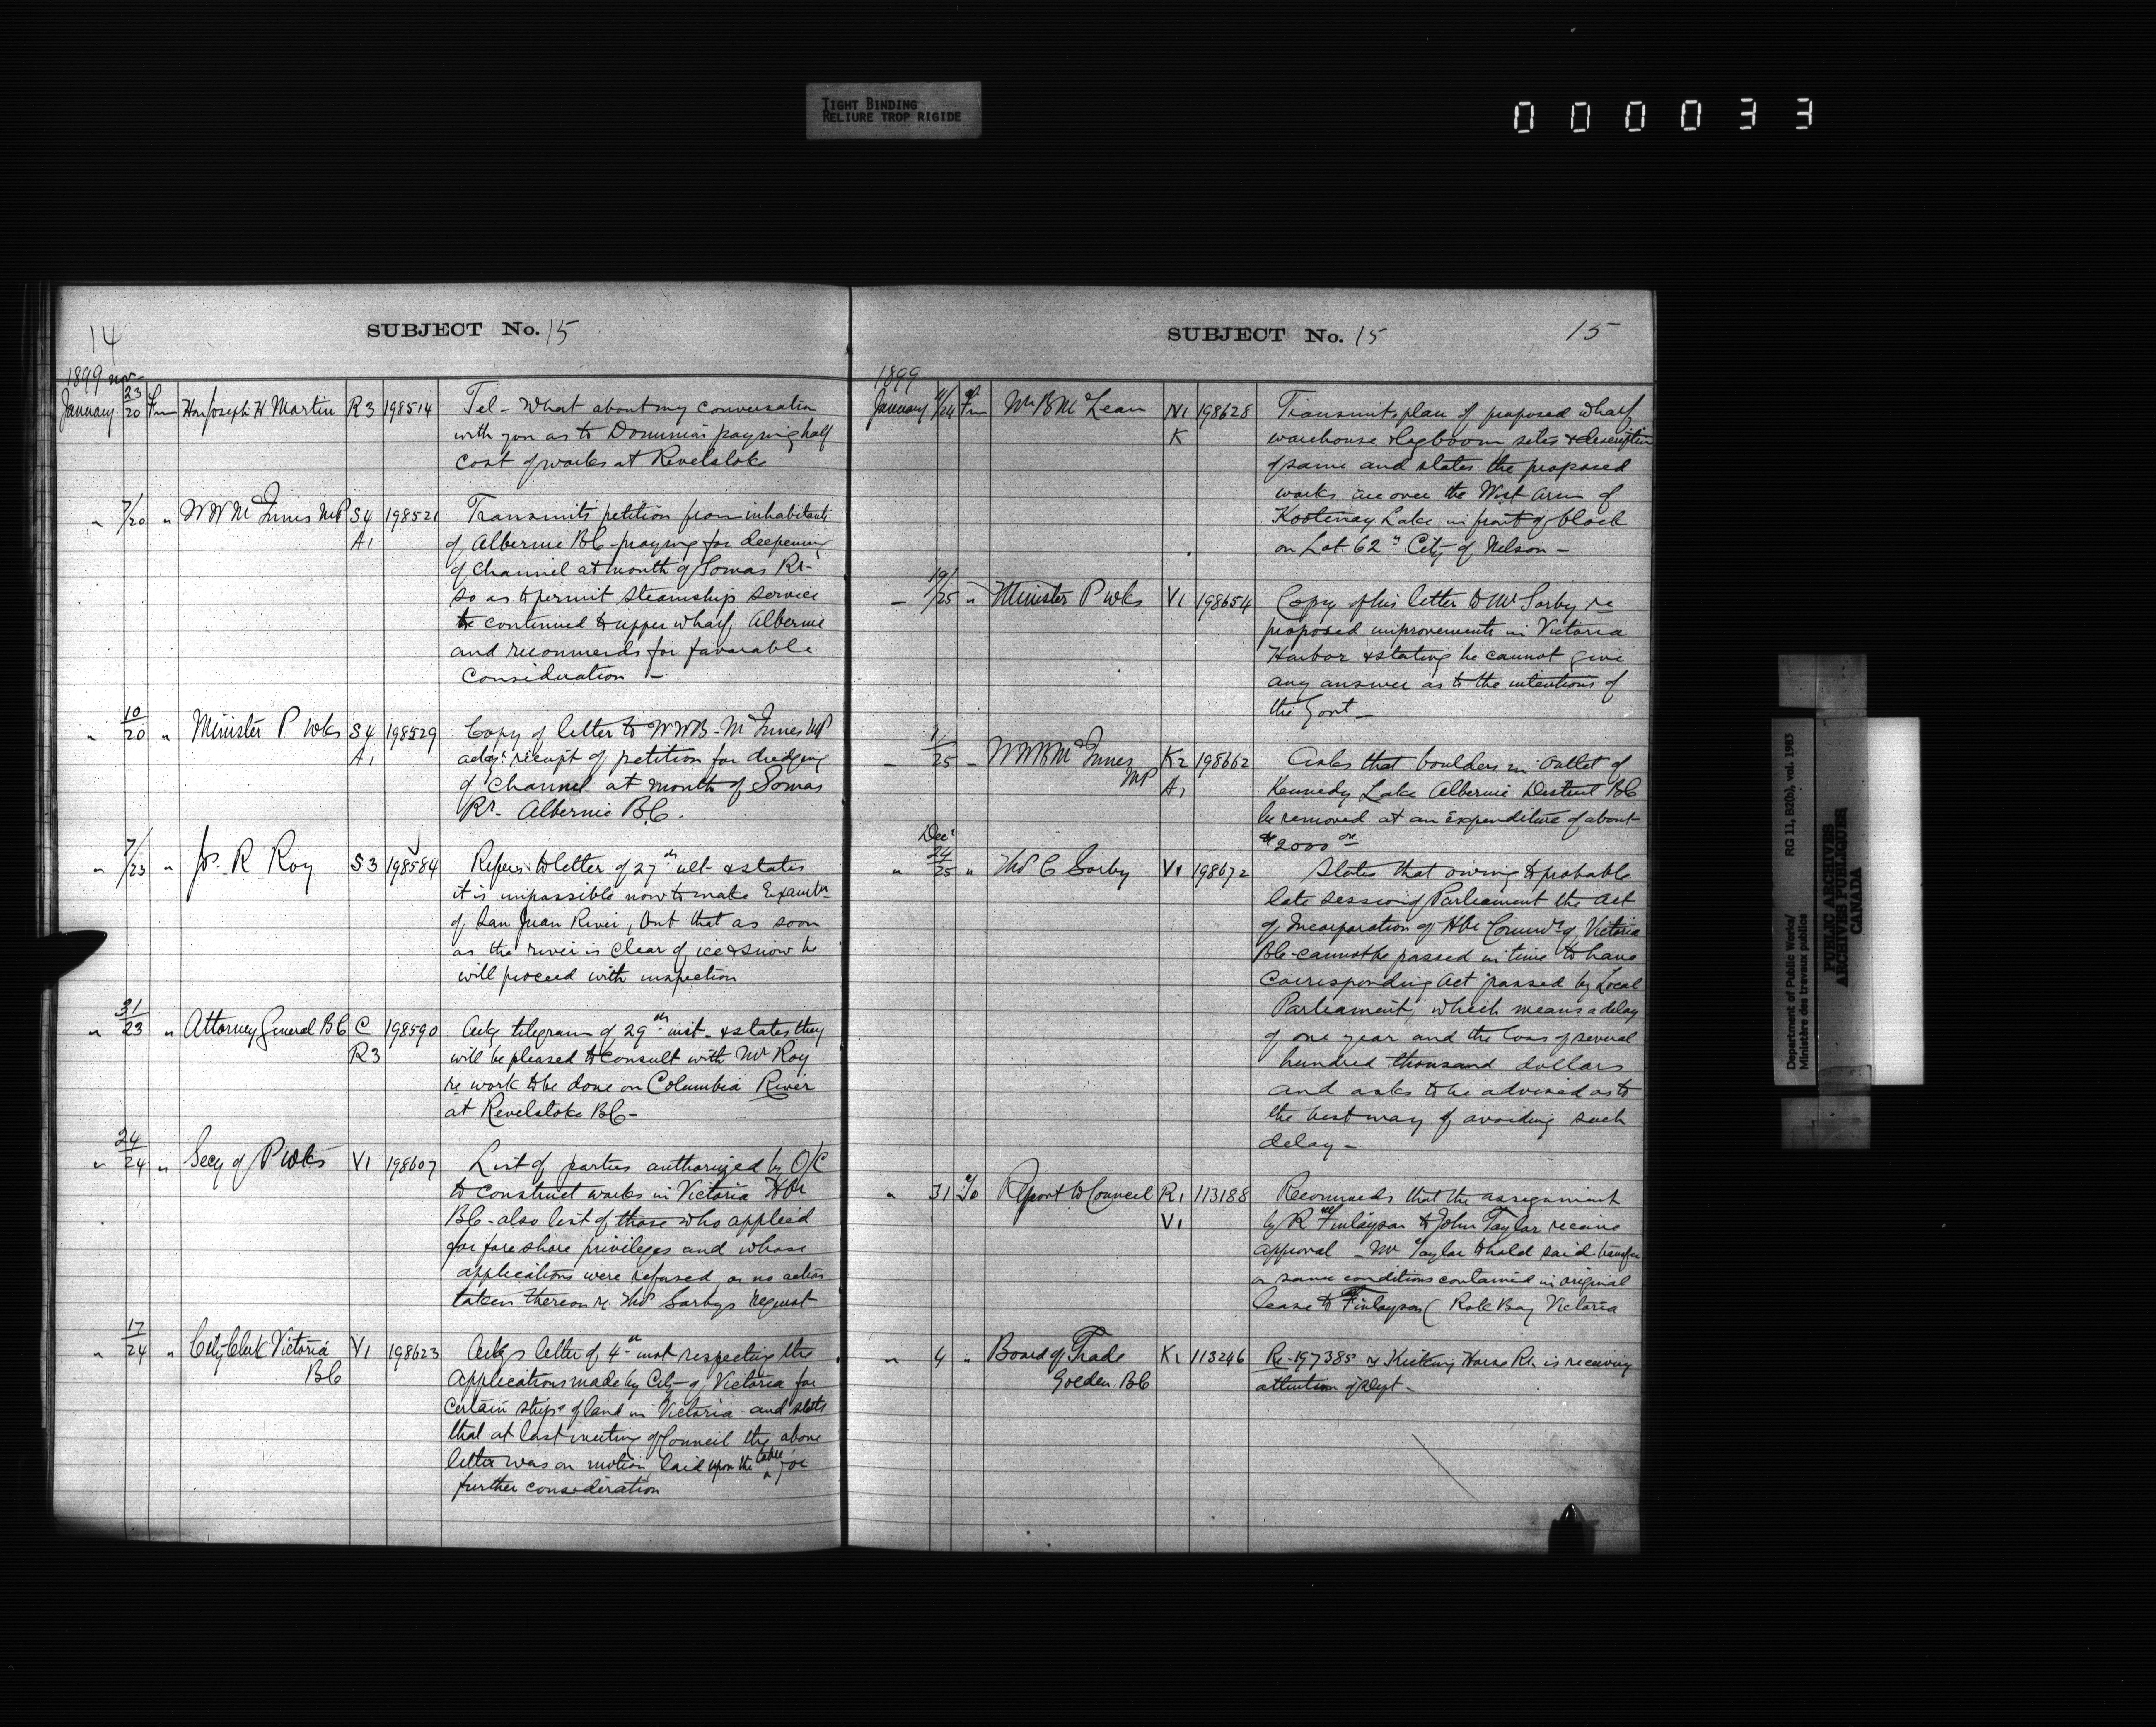 TIGHT BINDING
RELIURE TROP RIGIDE
000033
14
SUBJECT No. 15
1899 Nov
January 23/20 Fm Hon Joseph H Martin R3 198514 Tel - What about my conversation
with you as to Dominion paying half
cost of works at Revelstoke
" 7/20 " W W McInnes MP S4 198521 Transmits petition from inhabitants
A1 of Albernie BC - praying for deepening
of Channel at mouth of Somas Rr-
so as to permit steamship service
be continued to upper wharf, Albernie
and recommends for favorable
consideration -
" 10/20 " Minister P Wks S4 198529 Copy of letter to WWB - McInnes MP
A1 ackg: receipt of petition for dredging
of Channel at mouth of Somas
Rr. Albernie B.C.
" 7/23 " Jos. R Roy S3 198584 Refers to letter of 27th ult - & states
it is impossible now to make Examtn
of San Juan River, but that as soon
as the river is clear of ice & snow he
will proceed with inspection
" 31/23 " Attorney General BC C 198590 Ackg telegram of 29th inst - & states they
R3 will be pleased to consult with Mr Roy
re work to be done on Columbia River
at Revelstoke BC -
" 24/24 " Secy of P Wks V1 198607 List of parties authorized by O/C
to construct works in Victoria Hbr
BC - also list of those who applied
for fore shore privileges and whose
applications were refused, or no action
taken thereon re Thos Sorbys request
" 17/24 " City Clerk Victoria V1 198623 Ackgs letter of 4th inst respecting the
BC applications made by City of Victoria for
certain strips of land in Victoria and states
that at last meeting of Council the above
letter was on motion laid upon the table for
further consideration
SUBJECT No. 15
15
1899
January 11/24 Fm Mr B McLean N1 198628 Transmits plan of proposed wharf,
K warehouse & logboom sites & description
of same and states the proposed
works are over the West Arm of
Kootenay Lake in front of block
on Lot 62" City of Nelson -
- 19/25 " Minister P Wks V1 198654 Copy of his letter to Mr Sorby re
proposed improvements in Victoria
Harbor & stating he cannot give
any answer as to the intentions of
the Govt -
- 1/25 - WWB McInnes K2 198662 Asks that boulders in outlet of
MP A1 Kennedy Lake Albernie District BC
be removed at an expenditure of about
$2000 00
Decr
" 24/25 " Thos C Sorby V1 198672 States that owing to probable
late session of Parliament the Act
of Incorporation of Hbr Commrs of Victoria
BC - cannot be passed in time to have
corresponding Act passed by Local
Parliament, which means a delay
of one year and the loss of several
hundred thousand dollars
and asks to be advised as to
the best way of avoiding such
delay -
" 31 To Report to Council R1 113188 Recommends that the assignment
V1 by R Finlayson to John Taylor receive
approval - Mr Taylor to hold said transfer
on same conditions contained in original
lease to Finlayson ( Rock Bay Victoria
" 4 " Board of Trade K1 113246 Re-197385 re Kicking Horse Rr. is receiving
Golden BC attention of Dept -
Department of Public Works/
Ministère des travaux publics
RG 11, B2(b), vol. 1983
PUBLIC ARCHIVES
ARCHIVES PUBLIQUES
CANADA